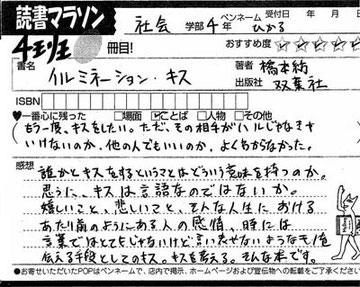 読書マラソン
社会 学部 4年 ペンネーム ひかる 受付日 年 月
冊目! おすすめ度 ☆☆☆☆
書名 イルミネーション・キス 著者 橋本紡
出版社 双葉社
ISBN
♥一番心に残った □場面 ☑ことば □人物 □その他
もう一度、キスをしたい。ただ、その相手がハルじゃなきゃ
いけないのか、他の人でもいいのか、よくわからなかった。
感想
誰かとキスをするということはどういう意味を持つのか。
思うに、キスは言語なのではないか。
嬉しいこと、悲しいこと、そんな人生における
あたり前のようにある人の感情、時には
言葉ではとてもじゃないけど言い表せないようなモノを
伝える手段としてのキス。キスを考える。そんな本です。
●お寄せいただいたPOPはペンネームで、店内で掲示、ホームページおよび宣伝物への転載をご了承